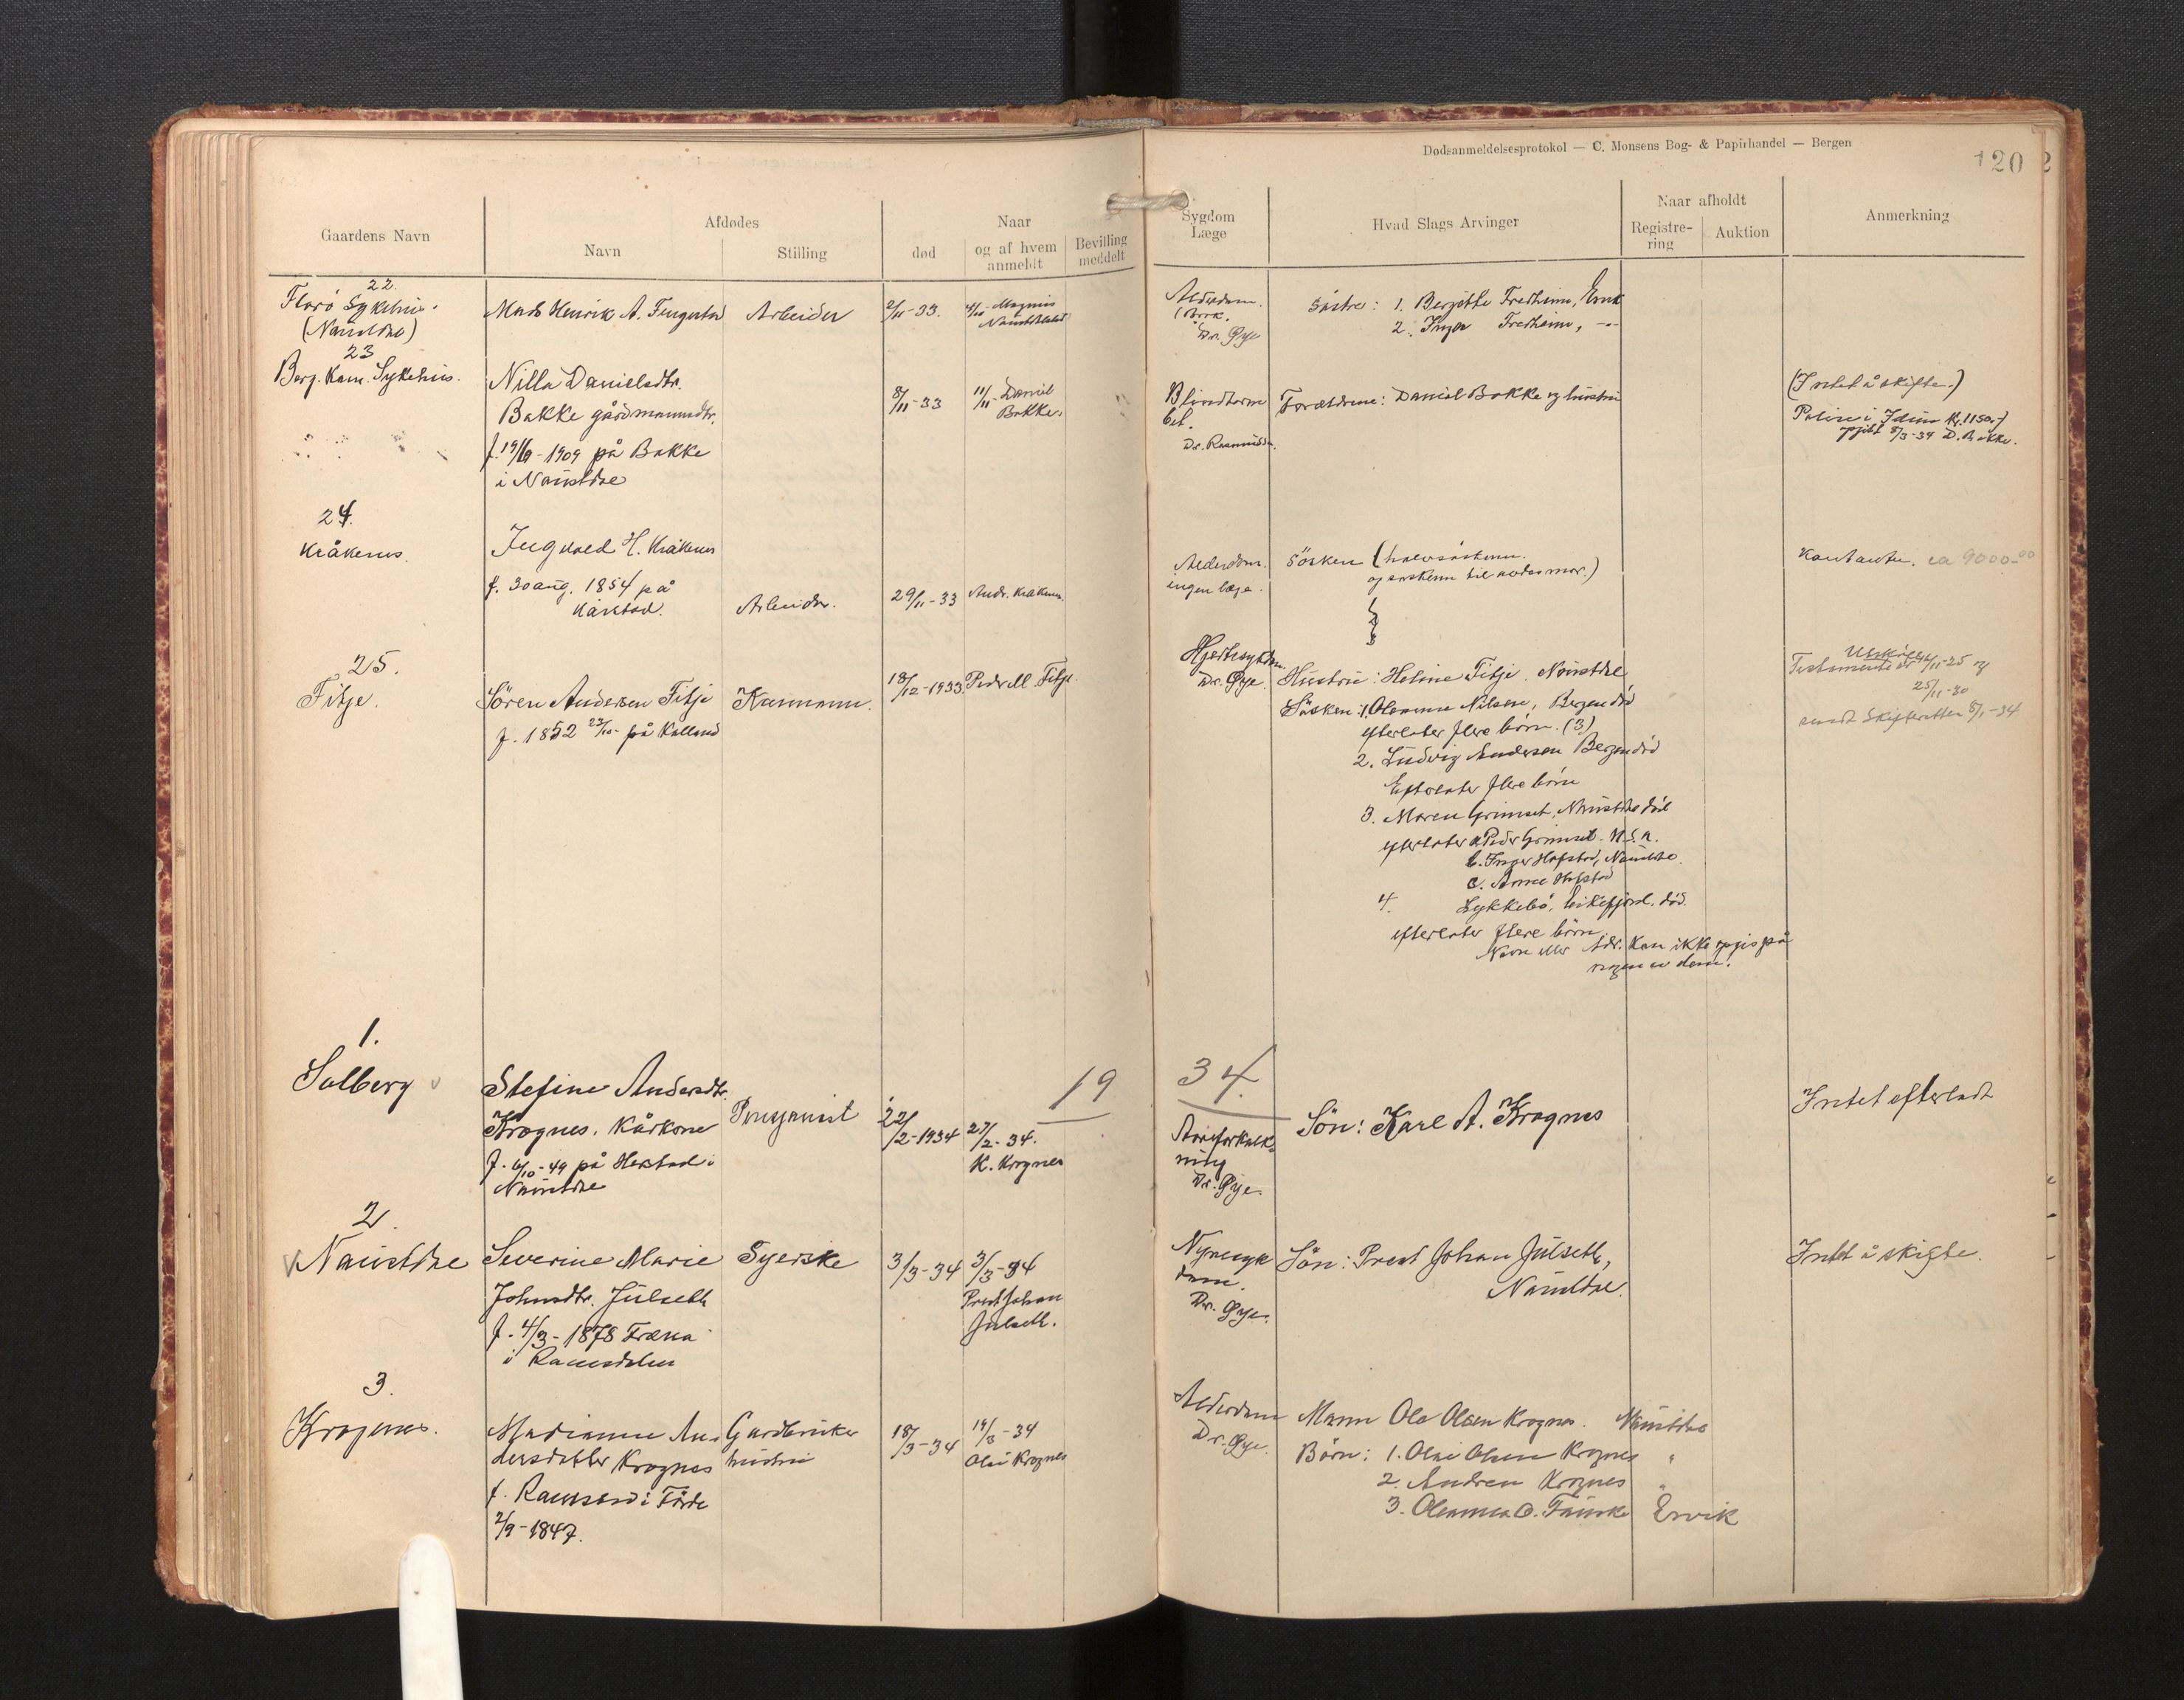 Dødsanmeldelsesprotokol — C. Monsens Bog- & Papirhandel — Bergen
120
Gaardens Navn
Afdødes
Navn
Stilling
Naar
død
og af hvem anmeldt
Bevilling meddelt
Sygdom
Læge
Hvad Slags Arvinger
Naar afholdt
Registre-
ring
Auktion
Anmerkning
22.
Florø Sykehus.
(Naustdal)
Mads Henrik A.
Arbeider
2/11-33.
Magnus
Alderdom.
Dr. Øye
Søstre: 1. Bergitte Fredheim,
2. Inger Fredheim, -"-
23
Berg. Kom. Sykehus.
Nilla Danielsdtr.
Bakke gårdmannsdtr.
f. 19/9-1909 på Bakke
i Naustdal
8/11-33
11/11- Daniel
Bakke.
Blindtarm
bet.
Dr. Rasmussen.
Forældrene: Daniel Bakke og hustru
(Intet å skifte.)
Polise i Idun kr. 1150,-)
8/3-34 D. Bakke.
24.
Kråkenes.
Ingvald H. Kråkenes
f. 30 aug. 1854 på
Kårstad.
Arbeider.
29/11-33
Andr. Kråkenes.
Alderdom.
ingen læge.
Søsken (halvsøsken
og søsken til avdøs mor.)
Kontanter. ca 9000.00
25.
Fitje.
Sören Andersen Fitje
f. 1852 på Kalland
Kårmann.
18/12-1933
Peder M. Fitje.
Hjertesykdom.
Dr. Øye.
Hustru: Heline Fitje. Naustdal
Søsken: 1. Oleanna Nilsen, Bergen död
efterlater flere börn. (3)
2. Ludvig Andersen Bergen död
Efterlater flere börn
3. Maren Grimset, Naustdal död
efterlater a. Peder Grimset. U.S.A.
b. Inger Hofstad, Naustdal.
c. Anne Hofstad
4. Lykkebø, Eikefjord. död.
efterlater flere börn
Navn eller Adr. kan ikke opgis på
nogen av dem.
Testamente
25/11-30
sendt Skifteretten 8/1-34
1934.
1.
Solberg
Stefine Andersdtr.
Krognes. Kårkone
f. 6/10-49 på Herstad i
Naustdal
22/2-1934
27/2-34.
K. Krognes
Åreforkalk-
ning
Dr. Øye.
Sön: Karl A. Krognes
Intet efterladt
2.
Naustdal
Severine Marie
Johnsdtr. Julseth
f. 4/3-1878 Fræna
i Romsdalen
Syerske
3/3-34
3/3-34
Prest Johan
Julseth.
Nyresyk-
dom.
Dr. Øye.
Sön: Prest Johan Julseth,
Naustdal.
Intet å skifte.
3.
Krognes.
Marianne An-
dersdatter Krognes
f. i Förde
2/9-1847.
Gardbruker
hustru
18/3-34
19/3-34
Olai Krognes
Alderdom
Dr. Øye.
Mann Ole Olsen Krognes. Naustdal
Börn: 1. Olai Olsen Krognes "
2. Andreas Krognes "
3. Oleanna O. Fauske Ervik